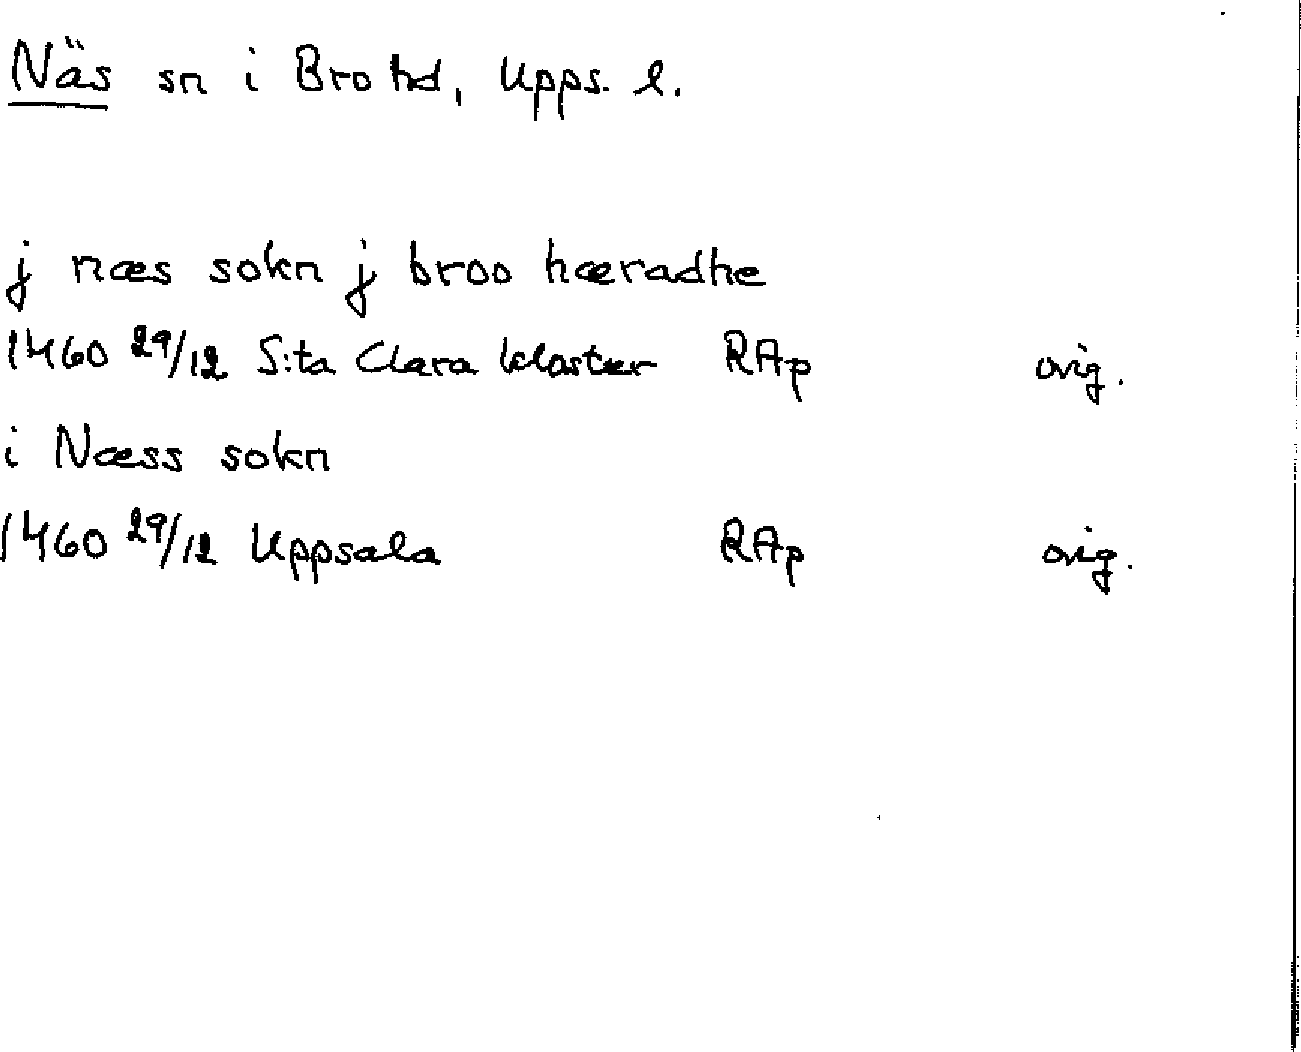 Näs sn i Bro hd, Upps. l.
j næs sokn j broo hæradhe
1460 29/12 S:ta Clara kloster RAp orig.
i Næss sokn
1460 29/12 Uppsala RAp orig.